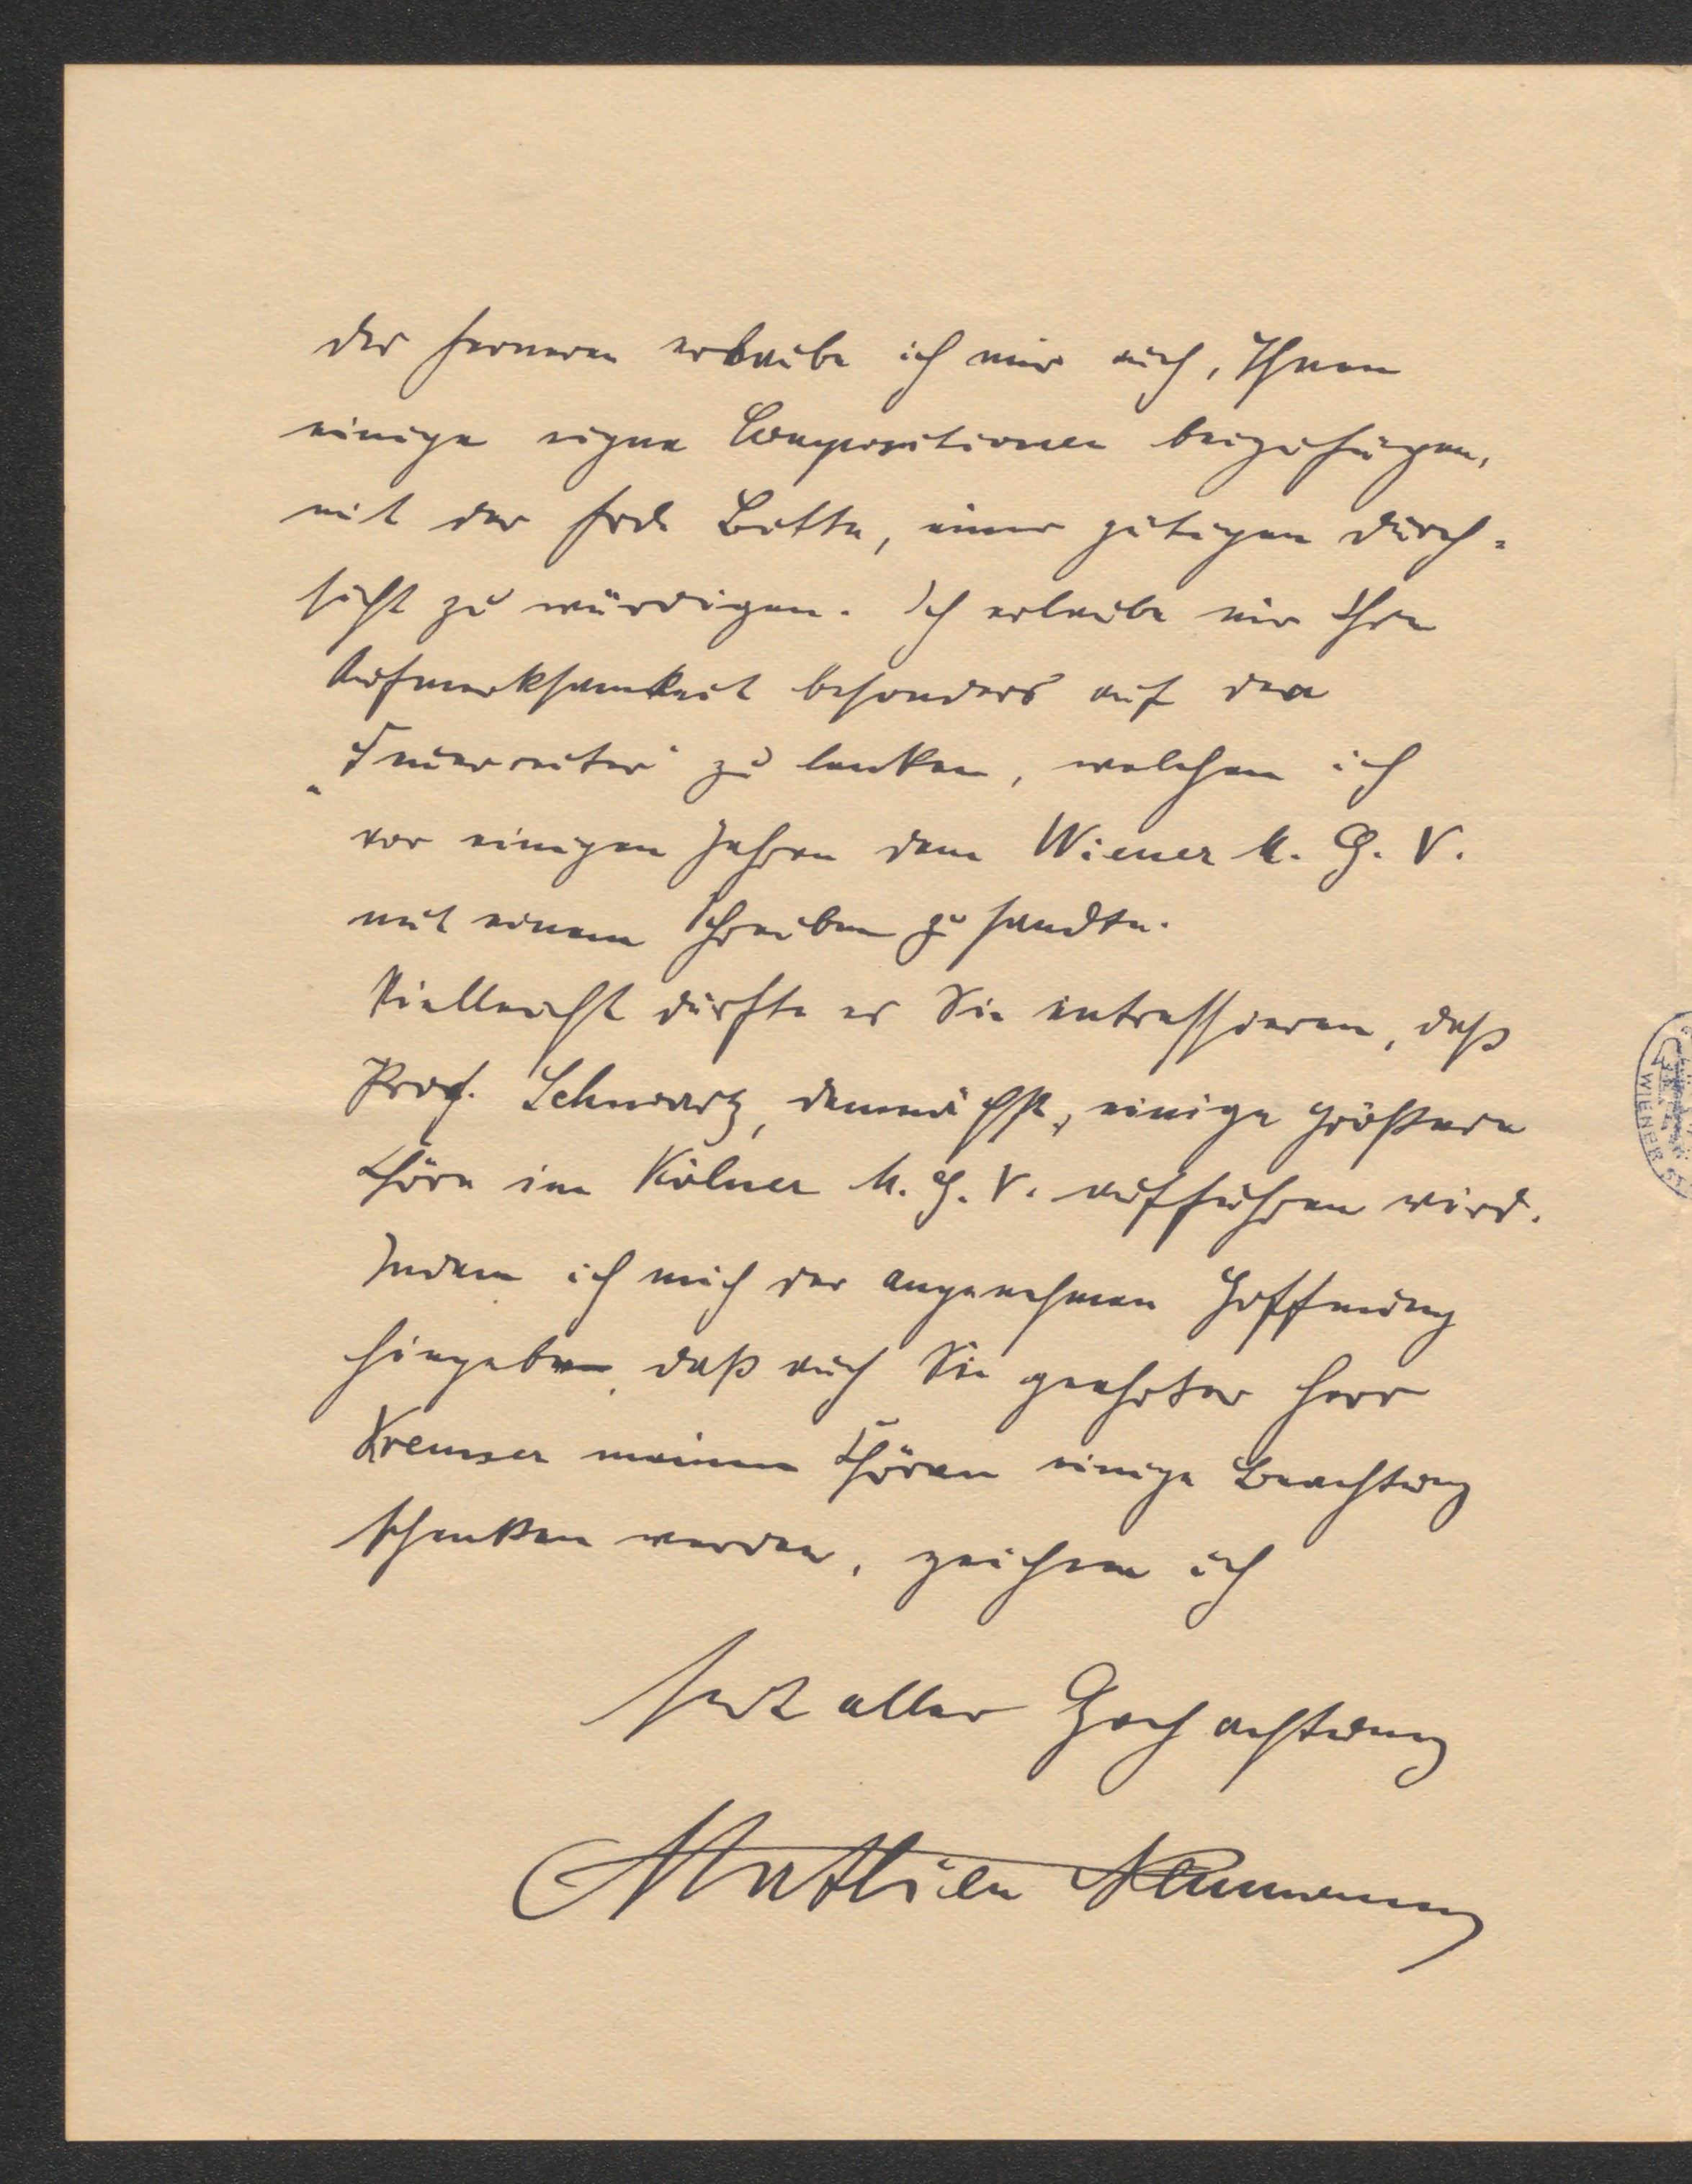 Des ferneren erlaube ich mir auch, Ihnen
einige eigne Compositionen beizufügen,
mit der frdl Bitte, einer gütigen Durch-
sicht zu würdigen. Ich erlaube mir Ihre
Aufmerksamkeit besonders auf den
„Feuerreiter“ zu lenken, welchen ich
vor einigen Jahren dem Wiener M. G. V.
mit einem Schreiben zusandte.
Vielleicht dürfte es Sie intressieren, daß
Prof. Schwartz, demnächst, einige größere
Chöre im Kölner M. G. V. aufführen wird.
Indem ich mich der angenehmen Hoffnung
hingebe, daß auch Sie geehrter Herr
Kremser meinen Chören einige Beachtung
schenken werden, zeichne ich
Mit aller Hochachtung
Mathieu Neumann
WIENER